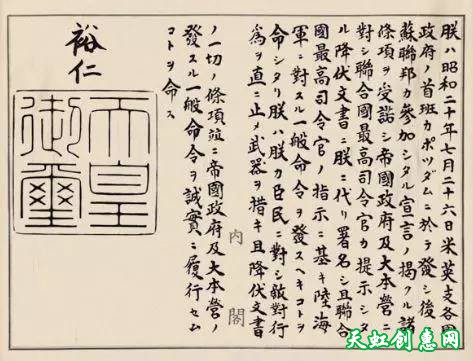 朕ハ昭和二十年七月二十六日米英支各國
政府ノ首班カポツダムニ於テ發シ後
蘇聯邦カ參加シタル宣言ノ掲クル諸
條項ヲ受諾シ帝國政府及大本營ニ
對シ聯合國最高司令官カ提示シ
ル降伏文書ニ朕ニ代リ署名シ且聯合
國最高司令官ノ指示ニ基キ陸海
軍ニ對スル一般命令ヲ發スヘキコトヲ
命シタリ朕ハ朕カ臣民ニ對シ敵對行
為ヲ直ニ止メ武器ヲ措キ且降伏文書
ノ一切ノ條項竝ニ帝國政府及大本營ニ
發スル一般命令ヲ誠實ニ履行セム
コトヲ命ス
裕仁
天皇
御璽
内閣
天虹创意网